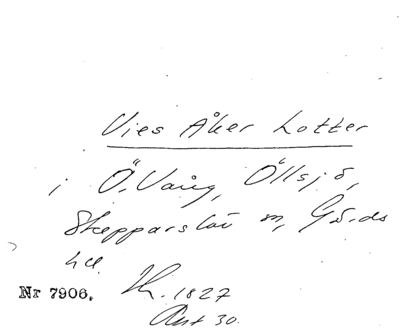 Vies Åker Lotter
i Ö. Vång, Öllsjö,
Skepparslöv m, Gärds
hd.
Nr 7906. 1827
30.